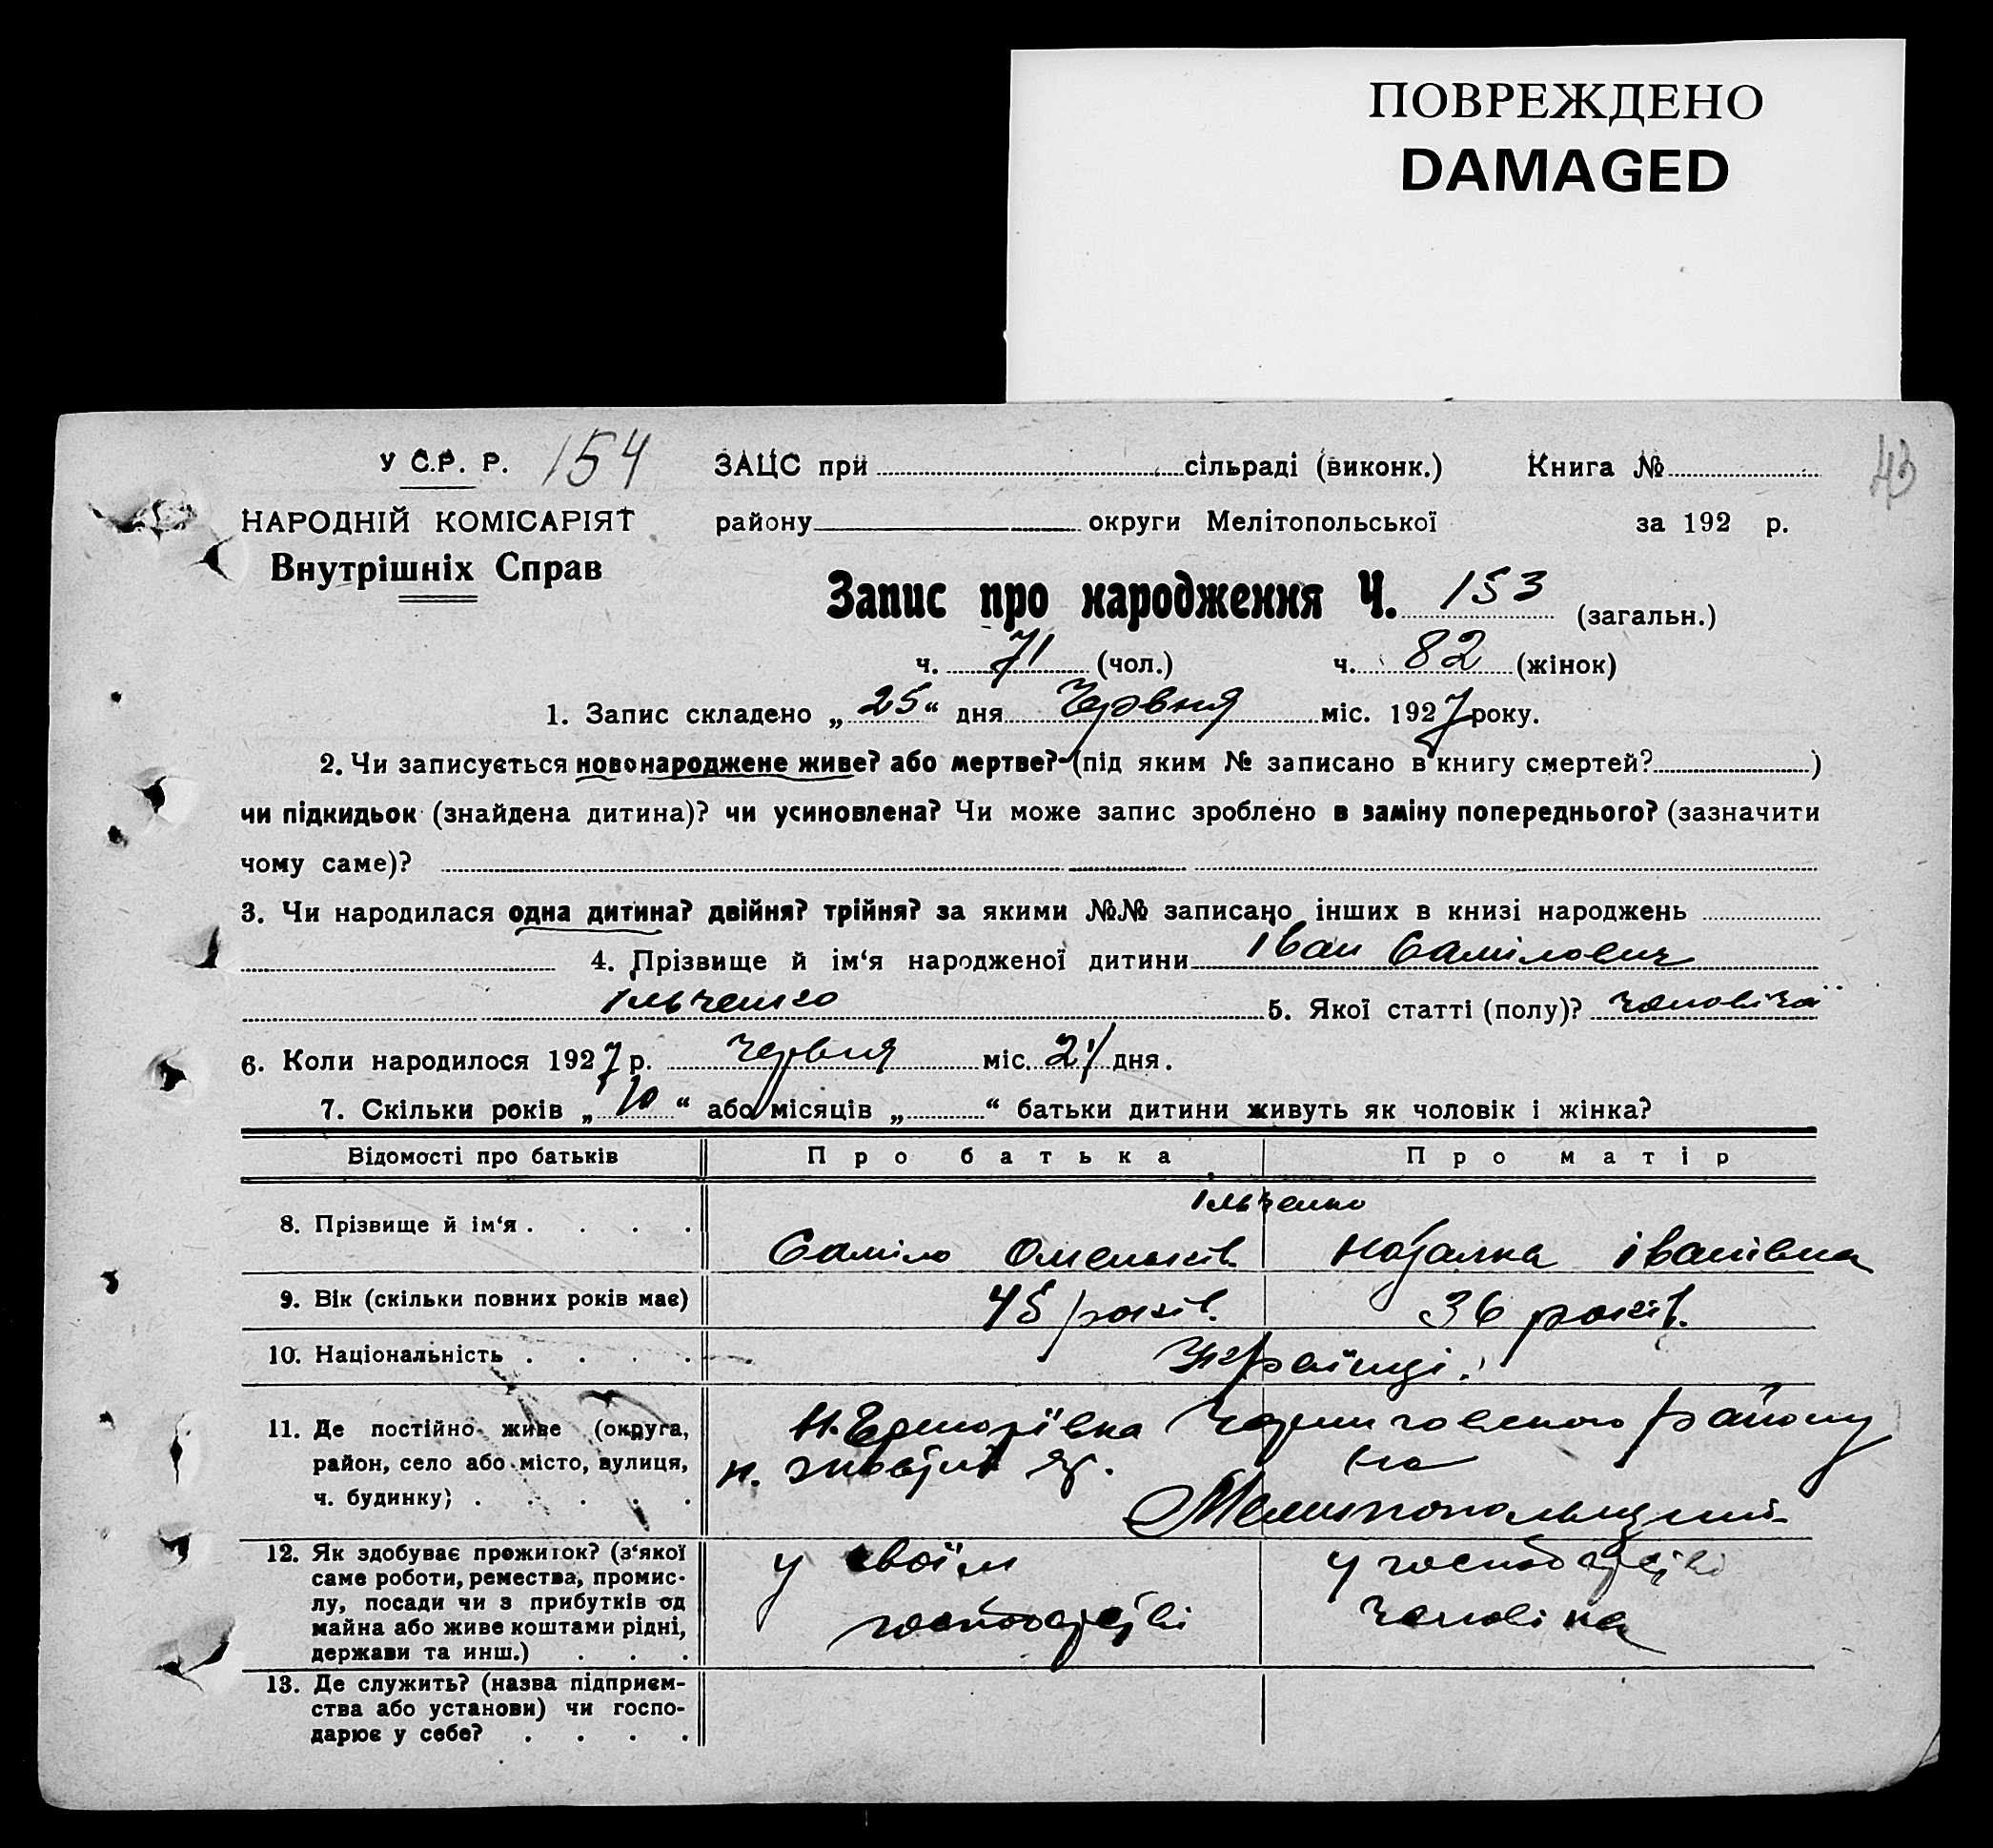 ПОВРЕЖДЕНО
DAMAGED
У С.Р. Р. 154 ЗАЦС при сільраді (виконк.) Книга № 43
НАРОДНІЙ КОМІСАРІЯТ району округи Мелітопольської за 192 р.
Внутрішніх Справ
Запис про народження Ч. 153 (загальн.)
ч. 71 (чол.) ч. 82 (жінок)
1. Запис складено „ 25 “ дня Червня міс. 1927 року.
2. Чи записується новонароджене живе? або мертве? (під яким № записано в книгу смертей? )
чи підкидьок (знайдена дитина)? чи усиновлена? Чи може запис зроблено в заміну попереднього? (зазначити
чому саме)?
3. Чи народилася одна дитина? двійня? трійня? за якими №№ записано інших в книзі народжень
4. Прізвище й ім‘я народженої дитини Іван Самілович
Ільченко 5. Якої статті (полу)? чоловічої
6. Коли народилося 1927 р. червня міс. 21 дня.
7. Скільки років „ 10 “ або місяців „ “ батьки дитини живуть як чоловік і жінка?
Відомості про батьків Про батька Про матір
Ільченко
8. Прізвище й ім‘я . . . . Саміло Омельків Наталка Іванівна
9. Вік (скільки повних років має) 45 років. 36 років.
10. Національність . . . . Українці.
11. Де постійно живе (округа, Черниговского району
район, село або місто, вулиця, н. на
ч. будинку) . . . . . Мелитопольщині
12. Як здобуває прожиток? (з‘якої у своїм у господарстві
саме роботи, ремества, промис-
лу, посади чи з прибутків од господарстві чоловіка
майна або живе коштами рідні,
держави та инш.) . . .
13. Де служить? (назва підприєм-
ства або установи) чи госпо-
дарює у себе? . . . .